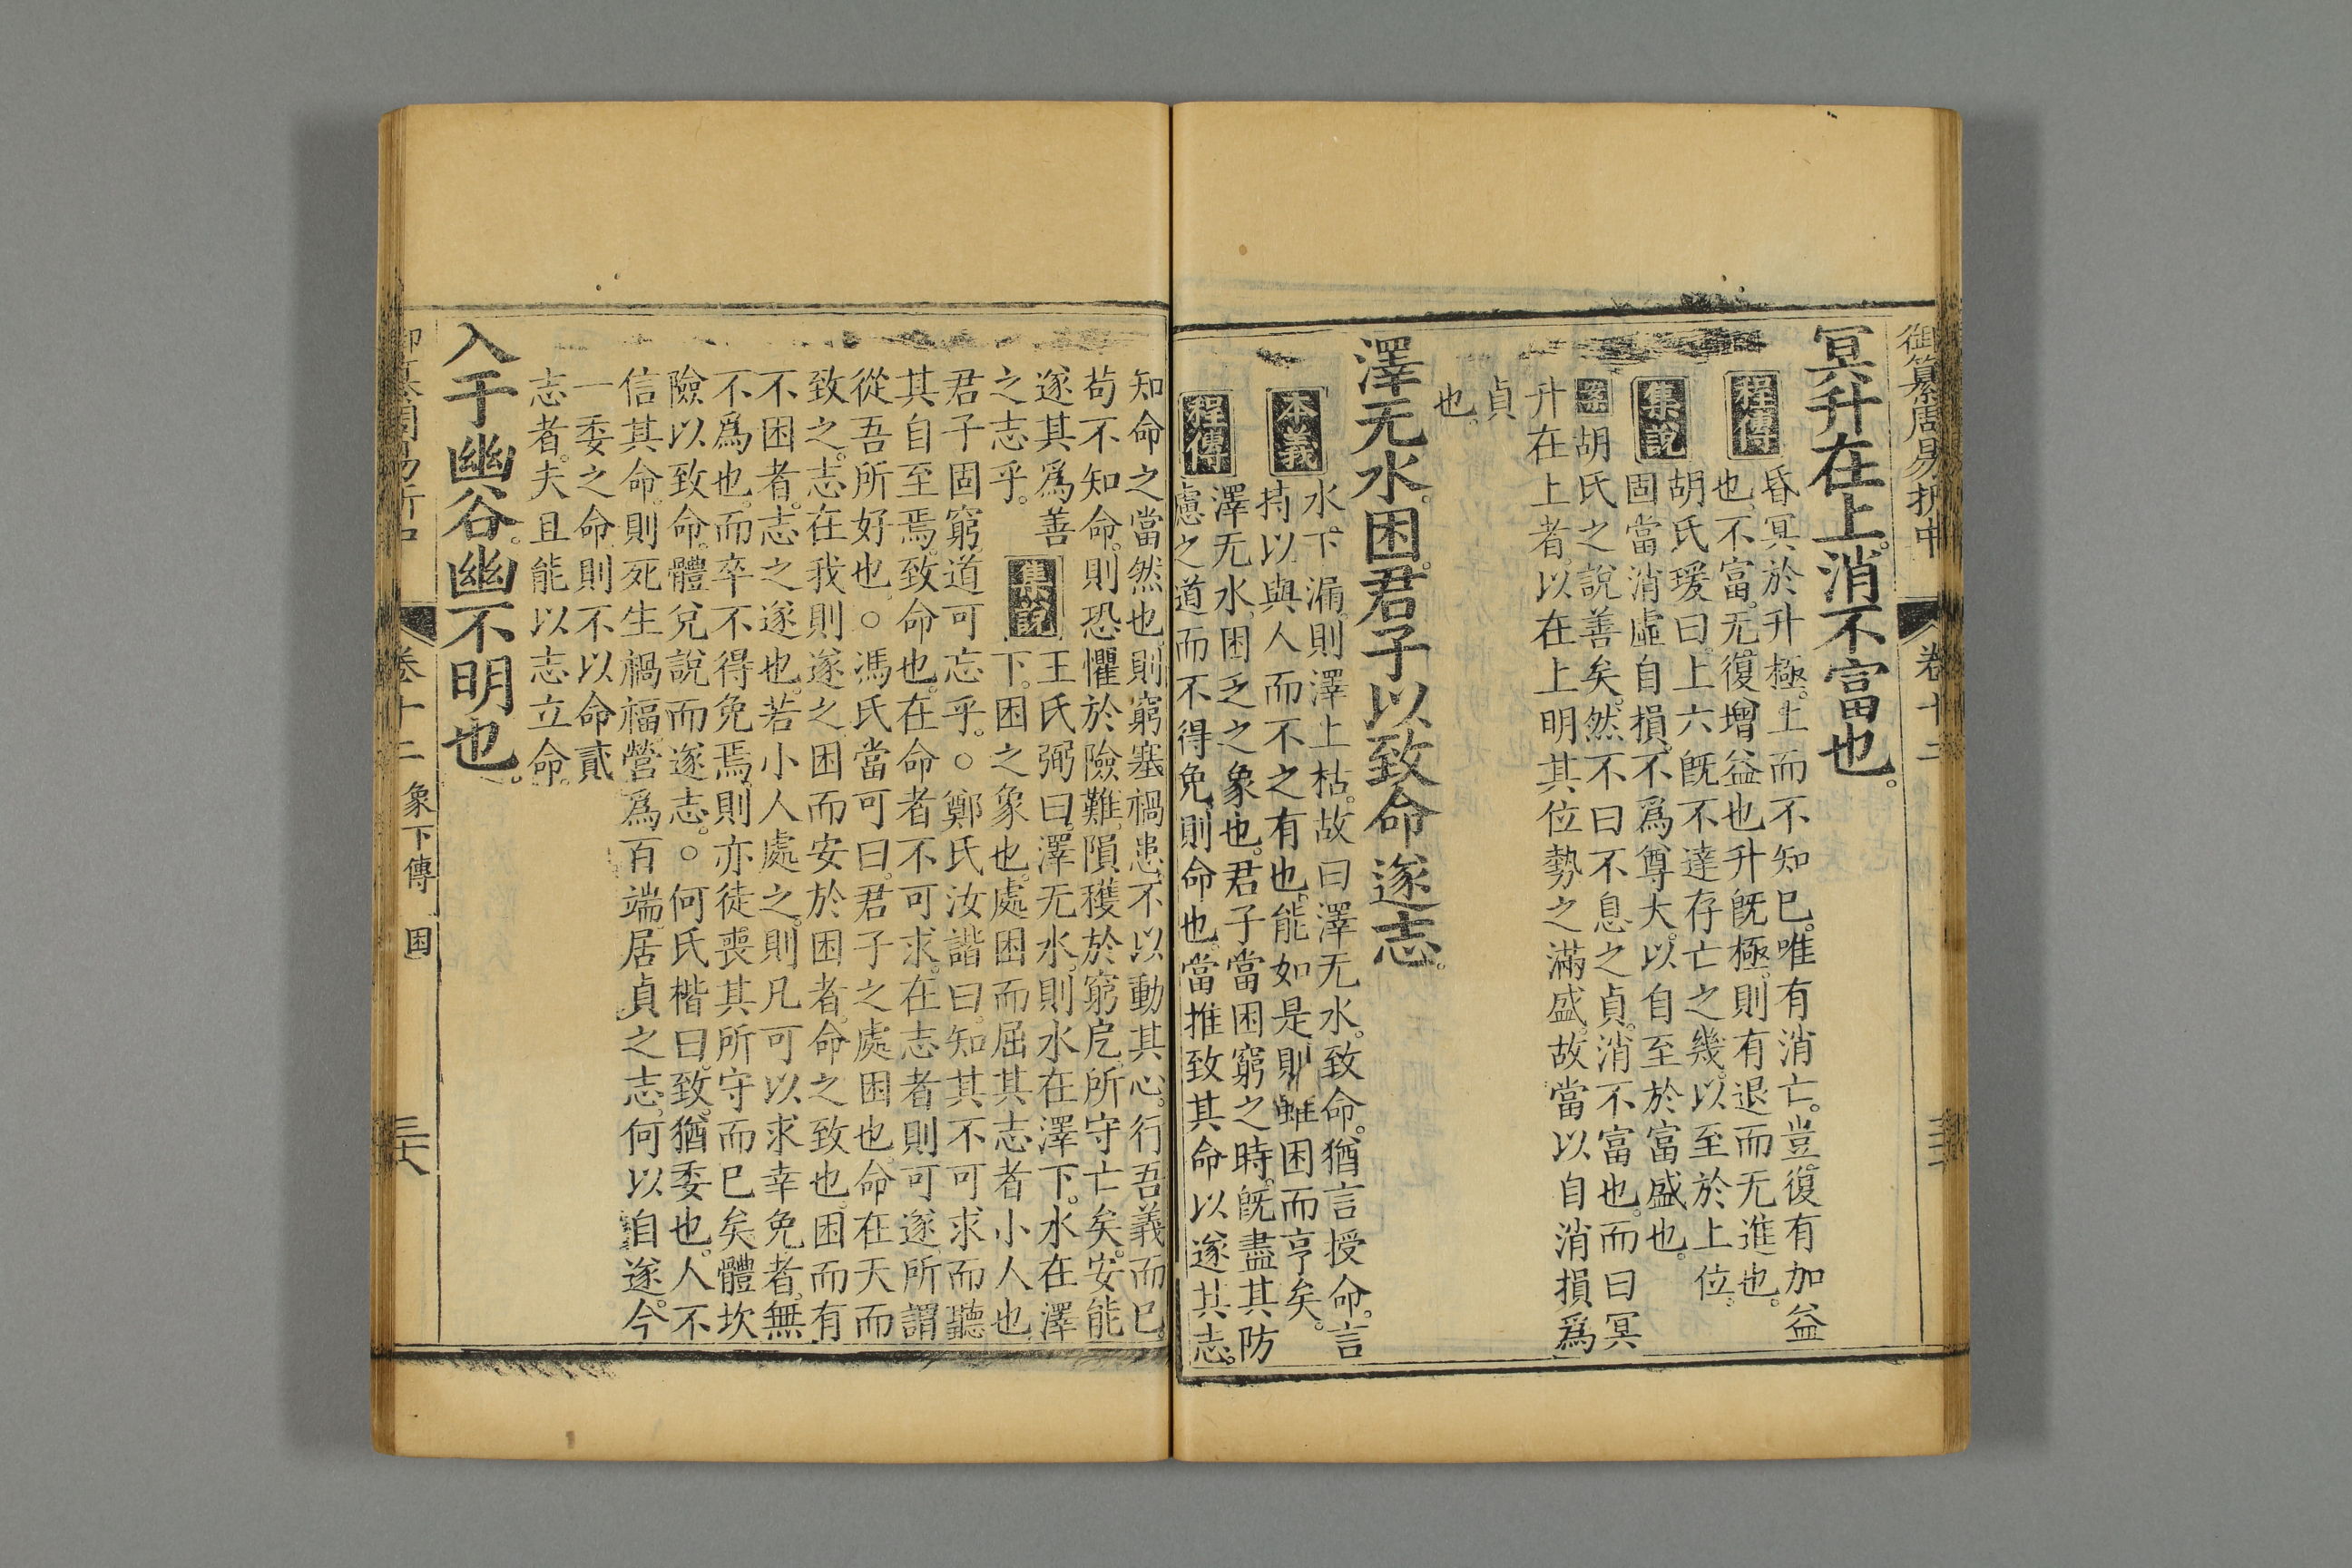 御纂周易折中 卷十二
冥升在上。消不富也。
程傳 昏冥於升極。上而不知已。唯有消亡。豈復有加益
也。不富。无復增益也。升旣極。則有退而无進也。
集說 胡氏瑗曰。上六旣不達存亡之幾。以至於上位。
固當消虛自損。不爲尊大。以自至於富盛也。
案 胡氏之說善矣。然不曰不息之貞。消不富也。而曰冥
升在上者。以在上明其位勢之滿盛。故當以自消損爲
貞
也。
澤无水。困。君子以致命遂志。
本義 水下漏。則澤上枯。故曰澤无水。致命。猶言授命。言
持以與人而不之有也。能如是。則雖困而亨矣。
程傳 澤无水。困乏之象也。君子當困窮之時。旣盡其防
慮之道而不得免。則命也。當推致其命以遂其志。
知命之當然也。則窮塞禍患。不以動其心。行吾義而已。
苟不知命。則恐懼於險難。隕穫於窮戹。所守亡矣。安能
遂其爲善
之志乎。 集說 王氏弼曰。澤无水。則水在澤下。水在澤
下。困之象也。處困而屈其志者。小人也。
君子固窮。道可忘乎。○鄭氏汝諧曰。知其不可求而聽
其自至焉。致命也。在命者不可求。在志者則可遂。所謂
從吾所好也。○馮氏當可曰。君子之處困也。命在天而
致之。志在我則遂之。困而安於困者。命之致也。困而有
不困者。志之遂也。若小人處之。則凡可以求幸免者。無
不爲也。而卒不得免焉。則亦徒喪其所守而已矣。體坎
險以致命。體兌說而遂志。○何氏楷曰。致。猶委也。人不
信其命。則死生禍福。營爲百端。居貞之志。何以自遂。今
一委之命。則不以命貳
志者。夫且能以志立命。
入于幽谷。幽不明也。
卷十二 象下傳 困 三六